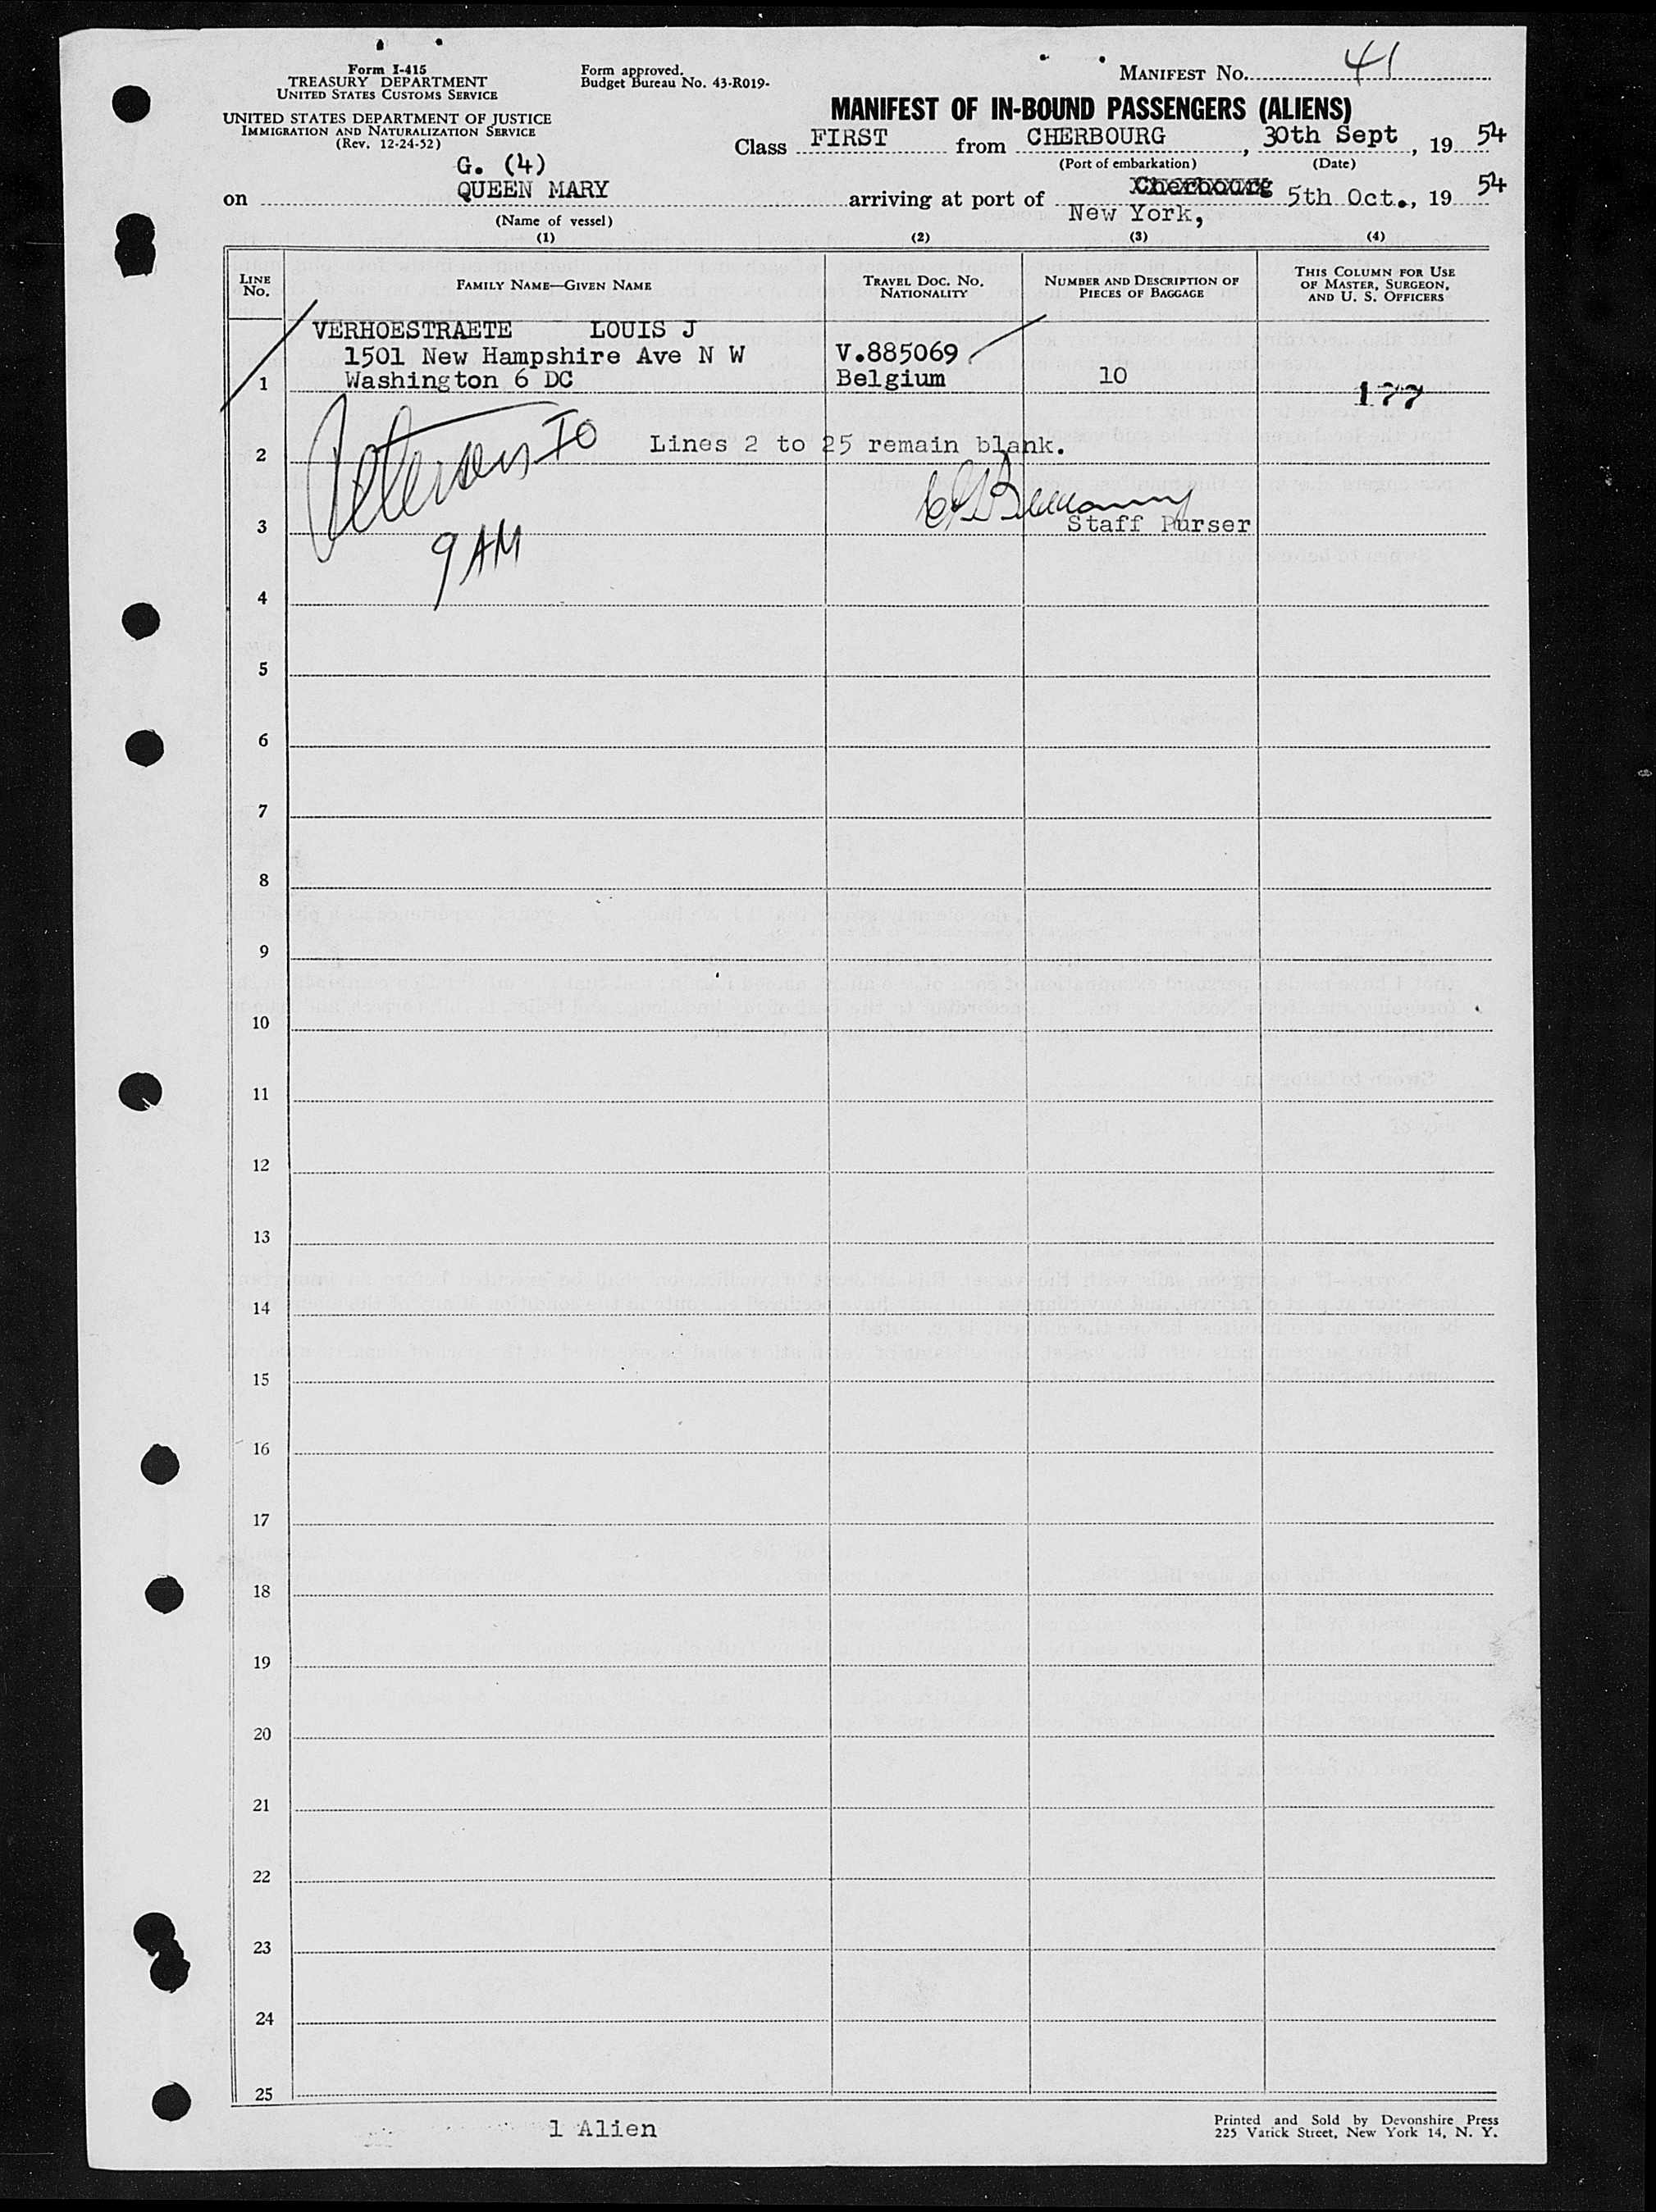 Form I-415
TREASURY DEPARTMENT
UNITED STATES CUSTOMS SERVICE
UNITED STATES DEPARTMENT OF JUSTICE
IMMIGRATION AND NATURALIZATION SERVICE
(Rev. 12-24-52)
Form approved.
Budget Bureau No. 43-R019-
MANIFEST No. 41
MANIFEST OF IN-BOUND PASSENGERS (ALIENS)
Class FIRST from CHERBOURG, 30th Sept, 19 54
(Port of embarkation) (Date)
G. (4)
on QUEEN MARY arriving at port of Cherbourg New York, 5th Oct., 19 54
(Name of vessel)
(1) (2) (3) (4)
LINE No. FAMILY NAME—GIVEN NAME TRAVEL DOC. NO. NATIONALITY NUMBER AND DESCRIPTION OF PIECES OF BAGGAGE THIS COLUMN FOR USE OF MASTER, SURGEON, AND U. S. OFFICERS
VERHOESTRAETE LOUIS J
1501 New Hampshire Ave N W V.885069
1 Washington 6 DC Belgium 10 177
Peterson IO
2 Lines 2 to 25 remain blank.
3 Staff Purser
9 AM
4
5
6
7
8
9
10
11
12
13
14
15
16
17
18
19
20
21
22
23
24
25
1 Alien
Printed and Sold by Devonshire Press
225 Varick Street, New York 14, N. Y.